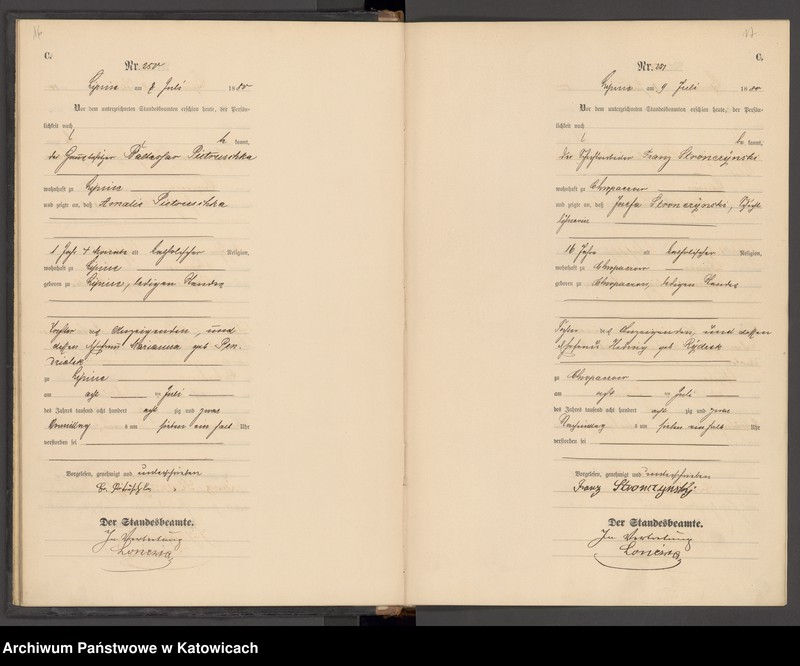 C.
Nr. 250
Lipine am 8 Juli 1880
Vor dem unterzeichneten Standesbeamten erschien heute, der Persön-
lichkeit nach
kannt,
der Hausbesitzer Pietruschka
wohnhaft zu Lipine
und zeigte an, daß Amalie Pietruschka
1 Jahr 4 Monate alt katholischer Religion,
wohnhaft zu Lipine
geboren zu Lipine, ledigen Standes
Tochter des Anzeigenden, und
dessen Ehefrau Marianna geb
zu Lipine
am acht ten Juli
des Jahres tausend acht hundert acht zig und zwar
Vormittag s um sieben ein halb Uhr
verstorben sei
Vorgelesen, genehmigt und unterschrieben
Der Standesbeamte.
In Vertretung
17
C.
Nr. 251
Lipine am 9 Juli 1880
Vor dem unterzeichneten Standesbeamten erschien heute, der Persön-
lichkeit nach
kannt,
der Franz Stronczynski
wohnhaft zu Chropaczow
und zeigte an, daß Stronczynski,
16 Jahre alt katholischer Religion,
wohnhaft zu Chropaczow
geboren zu Chropaczow, ledigen Standes
des Anzeigenden, und dessen
Ehefrau Hedwig geb
zu Chropaczow
am acht ten Juli
des Jahres tausend acht hundert acht zig und zwar
Nachmittag s um sieben ein halb Uhr
verstorben sei
Vorgelesen, genehmigt und unterschrieben
Franz Stronczynski
Der Standesbeamte.
In Vertretung
Archiwum Państwowe w Katowicach